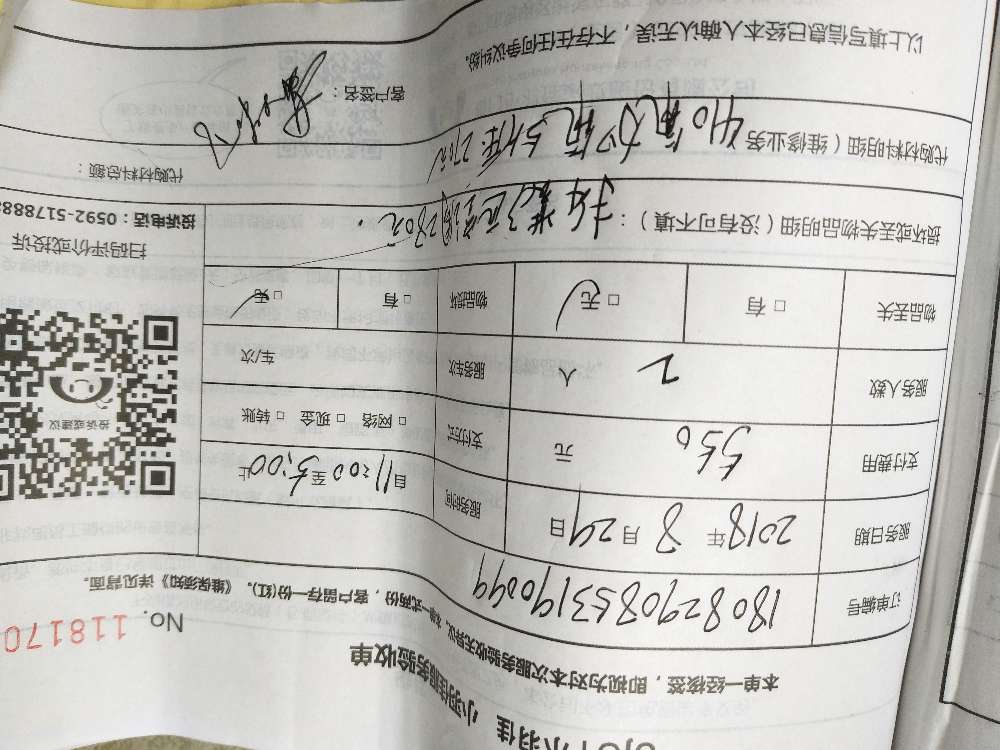 小羽佳 小羽佳服务验收单
No. 118170
本单一经核签，即视为对本次服务验收无异议。本单一式两份，客户留存一份(红)。《维保须知》详见背面。
订单编号 1808290853190099
服务日期 2018年8月29日 服务时间 自11:00至5:00止
支付费用 550元 支付方式 □ 网络 □ 现金 □ 转账
服务人数 2人 服务车次 车/次
物品丢失 □ 有 □ 无 物品损坏 □ 有 □ 无
投诉或建议
扫码评价或投诉
投诉电话：0592-517888
损坏或丢失物品明细（没有可不填）：
代购材料总额：
代购材料明细（维修业务
客户签名：
以上填写信息已经本人确认无误，不存在任何争议纠纷。